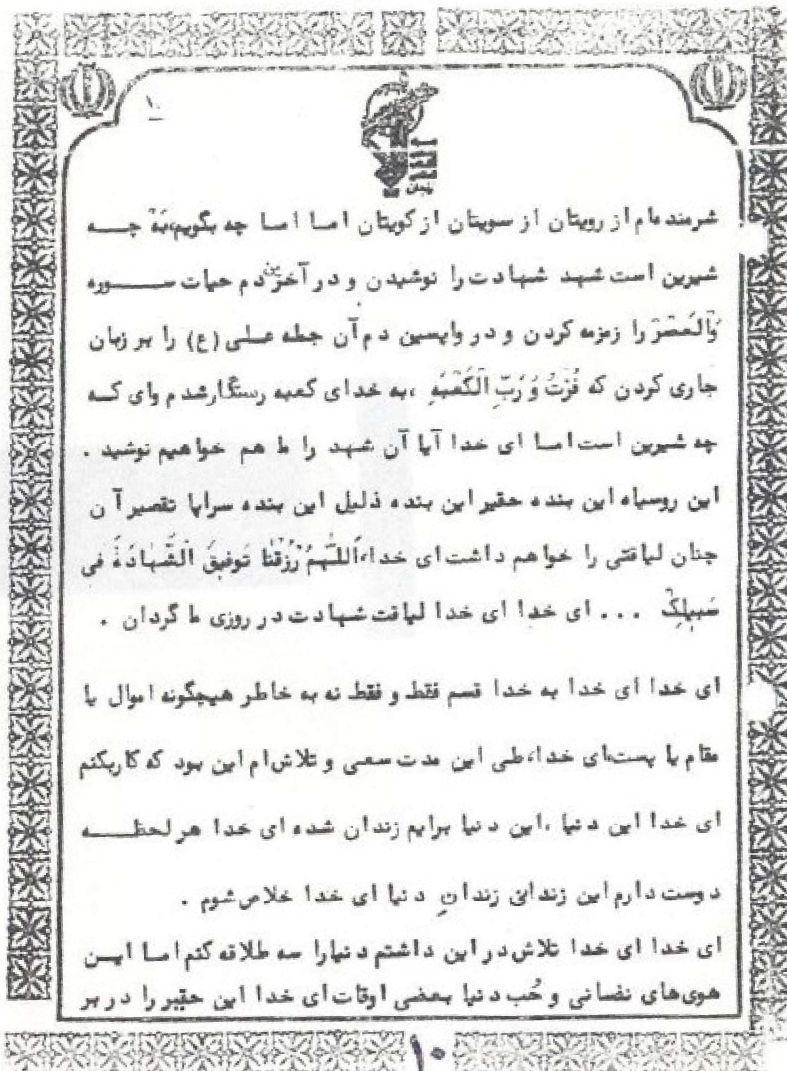 ۱۰
زنجان
شرمنده‌ام از رویتان از سویتان از کویتان اما اما چه بگویم،به چه
شیرین است شهد شهادت را نوشیدن و در آخرین دم حیات سوره
وَالْعَصْرَ را زمزمه کردن و در واپسین دم آن جمله علی (ع) را بر زبان
جاری کردن که فُزْتُ وَ رَبِّ الْکَعْبَهِ ،به خدای کعبه رستگار شدم وای که
چه شیرین است اما ای خدا آیا آن شهد را ما هم خواهیم نوشید .
این روسیاه این بنده حقیر این بنده ذلیل این بنده سراپا تقصیر آن
چنان لیاقتی را خواهم داشت ای خدا،اَللّهُمَّ رْزُقْنا تَوفیقَ الشَّهادَةَ فی
سَبیلِکَ ... ای خدا ای خدا لیاقت شهادت در روزی ما گردان .
ای خدا ای خدا به خدا قسم فقط و فقط نه به خاطر هیچگونه اموال یا
مقام یا پست،ای خدا،طی این مدت سعی و تلاش‌ام این بود که کاریکنم
ای خدا این دنیا ،این دنیا برایم زندان شده ای خدا هر لحظه
دوست دارم این زندانی زندانِ دنیا ای خدا خلاص شوم .
ای خدا ای خدا تلاش در این داشتم دنیارا سه طلاقه کنم اما این
هوی‌های نفسانی و حُب دنیا بعضی اوقات ای خدا این حقیر را در بر
۱۰